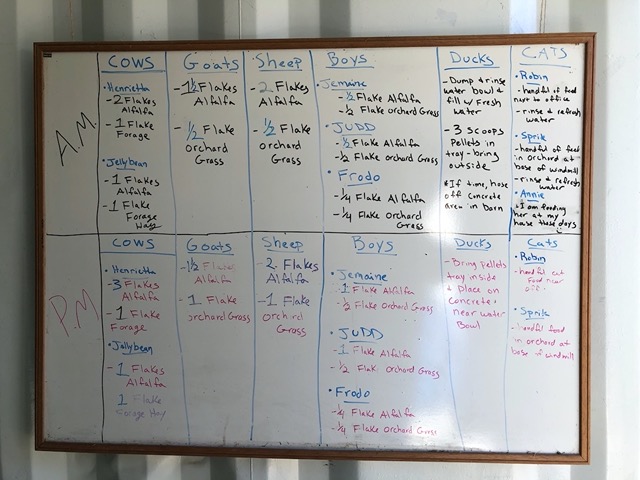 A.M.
COWS
• Henrietta
- 2 Flakes
Alfalfa
- 1 Flake
Forage
• Jellybean
- 1 Flakes
Alfalfa
- 1 Flake
Forage
Hay
Goats
- 1½ Flakes
Alfalfa
- ½ Flake
orchard
Grass
Sheep
- 2 Flakes
Alfalfa
- ½ Flake
orchard
Grass
Boys
• Jemaine
- ½ Flake Alfalfa
- ½ Flake Orchard Grass
• JUDD
- ½ Flake Alfalfa
- ½ Flake orchard Grass
• Frodo
- ¼ Flake Alfalfa
- ¼ Flake orchard
Grass
Ducks
- Dump & rinse
water bowl &
fill w/ Fresh
water
- 3 Scoops
Pellets in
tray - bring
outside
* If time, hose
off concrete
area in barn
CATS
• Robin
- handful of food
next to office
- rinse & refresh
water
• Sprik
- handful of feed
in orchard at
base of windmill
- rinse & refresh
water
• Annie
• I am feeding
her at my
house these days
P.M
COWS
• Henrietta
- 3 Flakes
Alfalfa
- 1 Flake
Forage
• Jellybean
- 1 Flakes
Alfalfa
1 Flake
Forage Hay
Goats
- 1½ Flakes
Alfalfa
- 1 Flake
orchard Grass
Sheep
- 2 Flakes
Alfalfa
- 1 Flake
orchard
Grass
Boys
• Jemaine
- 1 Flake Alfalfa
- ½ Flake Orchard Grass
• JUDD
- 1 Flake Alfalfa
- ½ Flak orchard Grass
• Frodo
- ¼ Flake Alfalfa
- ¼ Flake Orchard Grass
Ducks
- Bring pellets
tray inside
& place on
concrete
near water
Bowl
Cats
• Robin
- handful cat
Food near
• Sprik
- handful food
in orchard at
base of windmill